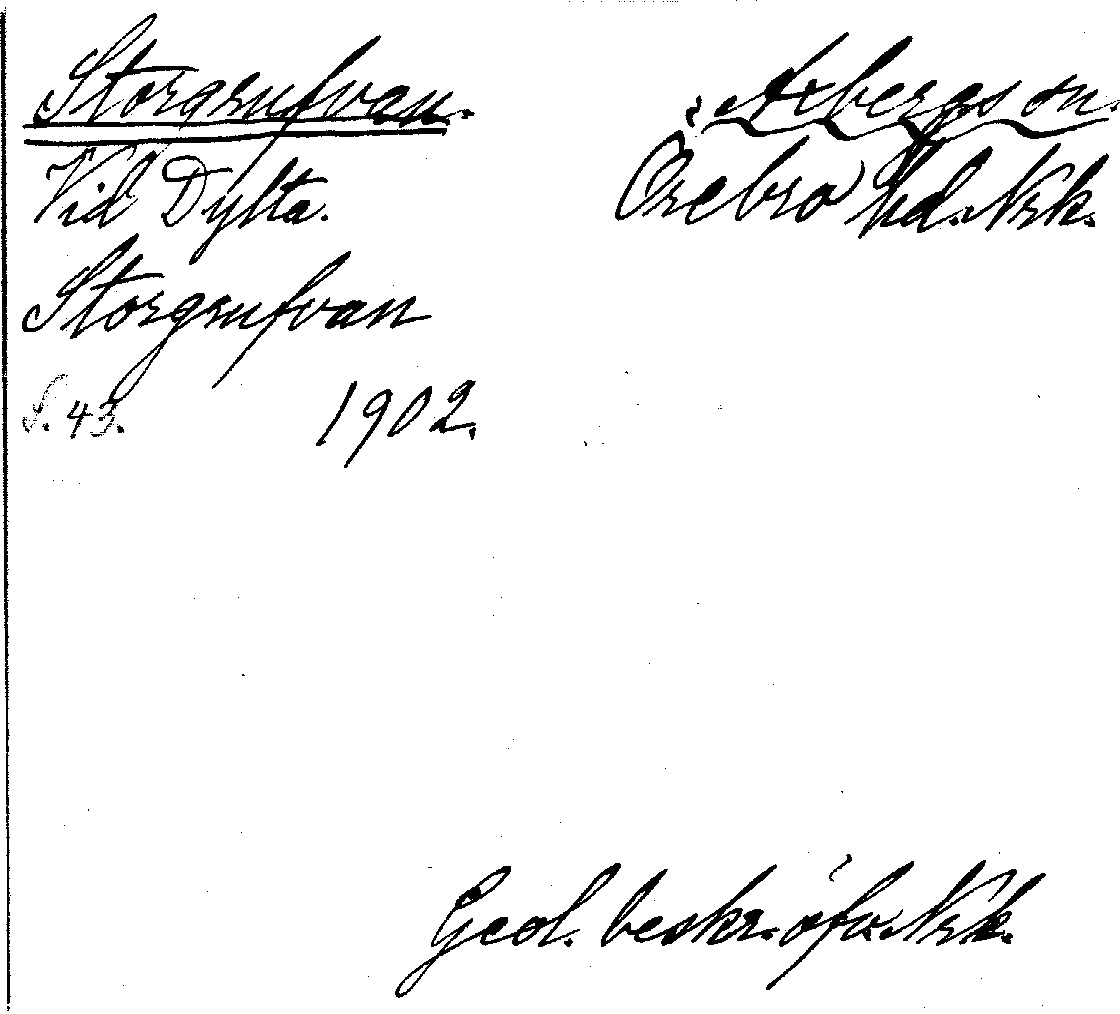 Storgrufvan.
Axbergs sn.
Vid Dylta.
Örebro hd. Nrk.
Storgrufvan
S. 43. 1902.
Geol. beskr. öfv. Nrk.